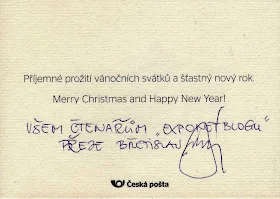 Příjemné prožití vánočních svátků a šťastný nový rok.
Merry Christmas and Happy New Year!
VŠEM ČTENAŘŮM „EXPONETBLOGU"
PŘEJE BŘETISLAV
Česká pošta